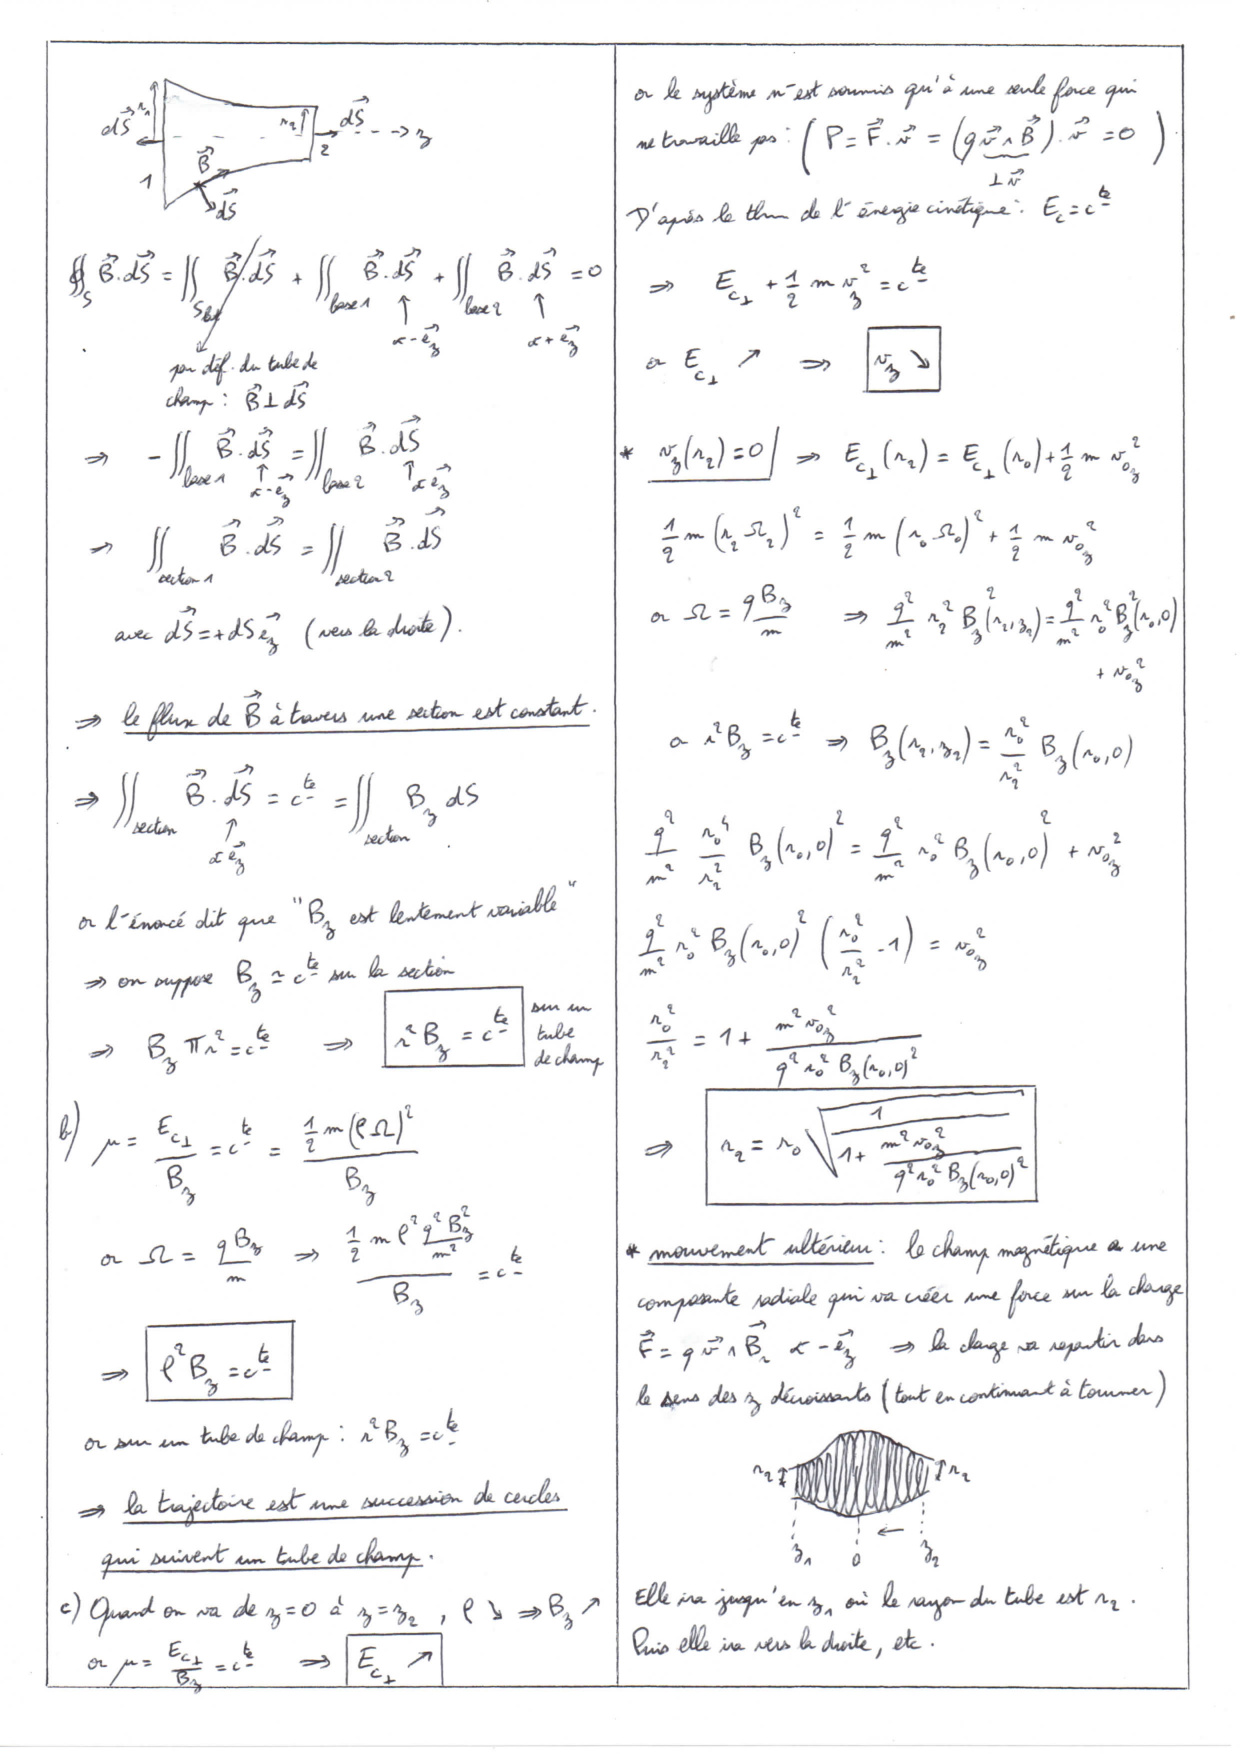 r₁
dS⃗
r₂
dS⃗
z
1
2
B⃗
dS⃗
∯_S B⃗.dS⃗ = ∬_Slat B⃗.dS⃗ + ∬_base 1 B⃗.dS⃗ + ∬_base 2 B⃗.dS⃗ = 0
↑ α-e⃗_z ↑ α+e⃗_z
par déf. du tube de
champ : B⃗ ⊥ dS⃗
⇒ -∬_base 1 B⃗.dS⃗ = ∬_base 2 B⃗.dS⃗
↑ α-e⃗_z ↑ α e⃗_z
⇒ ∬_section 1 B⃗.dS⃗ = ∬_section 2 B⃗.dS⃗
avec dS⃗ = +dS e⃗_z (vers la droite).
⇒ le flux de B⃗ à travers une section est constant.
⇒ ∬_section B⃗.dS⃗ = c^te = ∬_section B_z dS
↑ α e⃗_z
or l'énoncé dit que "B_z est lentement variable"
⇒ on suppose B_z ≃ c^te sur la section
⇒ B_z π r² = c^te ⇒ r² B_z = c^te sur un tube de champ
b) μ = E_c⊥ / B_z = c^te = ½ m (ρΩ)² / B_z
or Ω = q B_z / m ⇒ ½ m ρ² (q² B_z² / m²) / B_z = c^te
⇒ ρ² B_z = c^te
or sur un tube de champ : r² B_z = c^te
⇒ la trajectoire est une succession de cercles
qui suivent un tube de champ.
c) Quand on va de z=0 à z=z₂, ρ ↘ ⇒ B_z ↗
or μ = E_c⊥ / B_z = c^te ⇒ E_c⊥ ↗
or le système n'est soumis qu'à une seule force qui
ne travaille pas : ( P = F⃗.v⃗ = (q v⃗ ∧ B⃗).v⃗ = 0 )
⊥ v⃗
D'après le thm de l'énergie cinétique : E_c = c^te
⇒ E_c⊥ + ½ m v_z² = c^te
or E_c⊥ ↗ ⇒ v_z ↘
* v_z(r₂) = 0 ⇒ E_c⊥(r₂) = E_c⊥(r₀) + ½ m v_0z²
½ m (r₂ Ω₂)² = ½ m (r₀ Ω₀)² + ½ m v_0z²
or Ω = q B_z / m ⇒ q²/m² r₂² B_z²(r₂,z₂) = q²/m² r₀² B_z²(r₀,0)
+ v_0z²
or r² B_z = c^te ⇒ B_z(r₂,z₂) = r₀²/r₂² B_z(r₀,0)
q²/m² r₀⁴/r₂² B_z(r₀,0)² = q²/m² r₀² B_z(r₀,0)² + v_0z²
q²/m² r₀² B_z(r₀,0)² (r₀²/r₂² - 1) = v_0z²
r₀²/r₂² = 1 + m² v_0z² / (q² r₀² B_z(r₀,0)²)
⇒ r₂ = r₀ √(1 / (1 + m² v_0z² / (q² r₀² B_z(r₀,0)²)))
* mouvement ultérieur : le champ magnétique a une
composante radiale qui va créer une force sur la charge
F⃗ = q v⃗ ∧ B⃗_r α -e⃗_z ⇒ la charge va repartir dans
le sens des z décroissants (tout en continuant à tourner)
r₂
r₂
z₁ 0 z₂
Elle ira jusqu'en z₁ où le rayon du tube est r₂.
Puis elle ira vers la droite, etc.